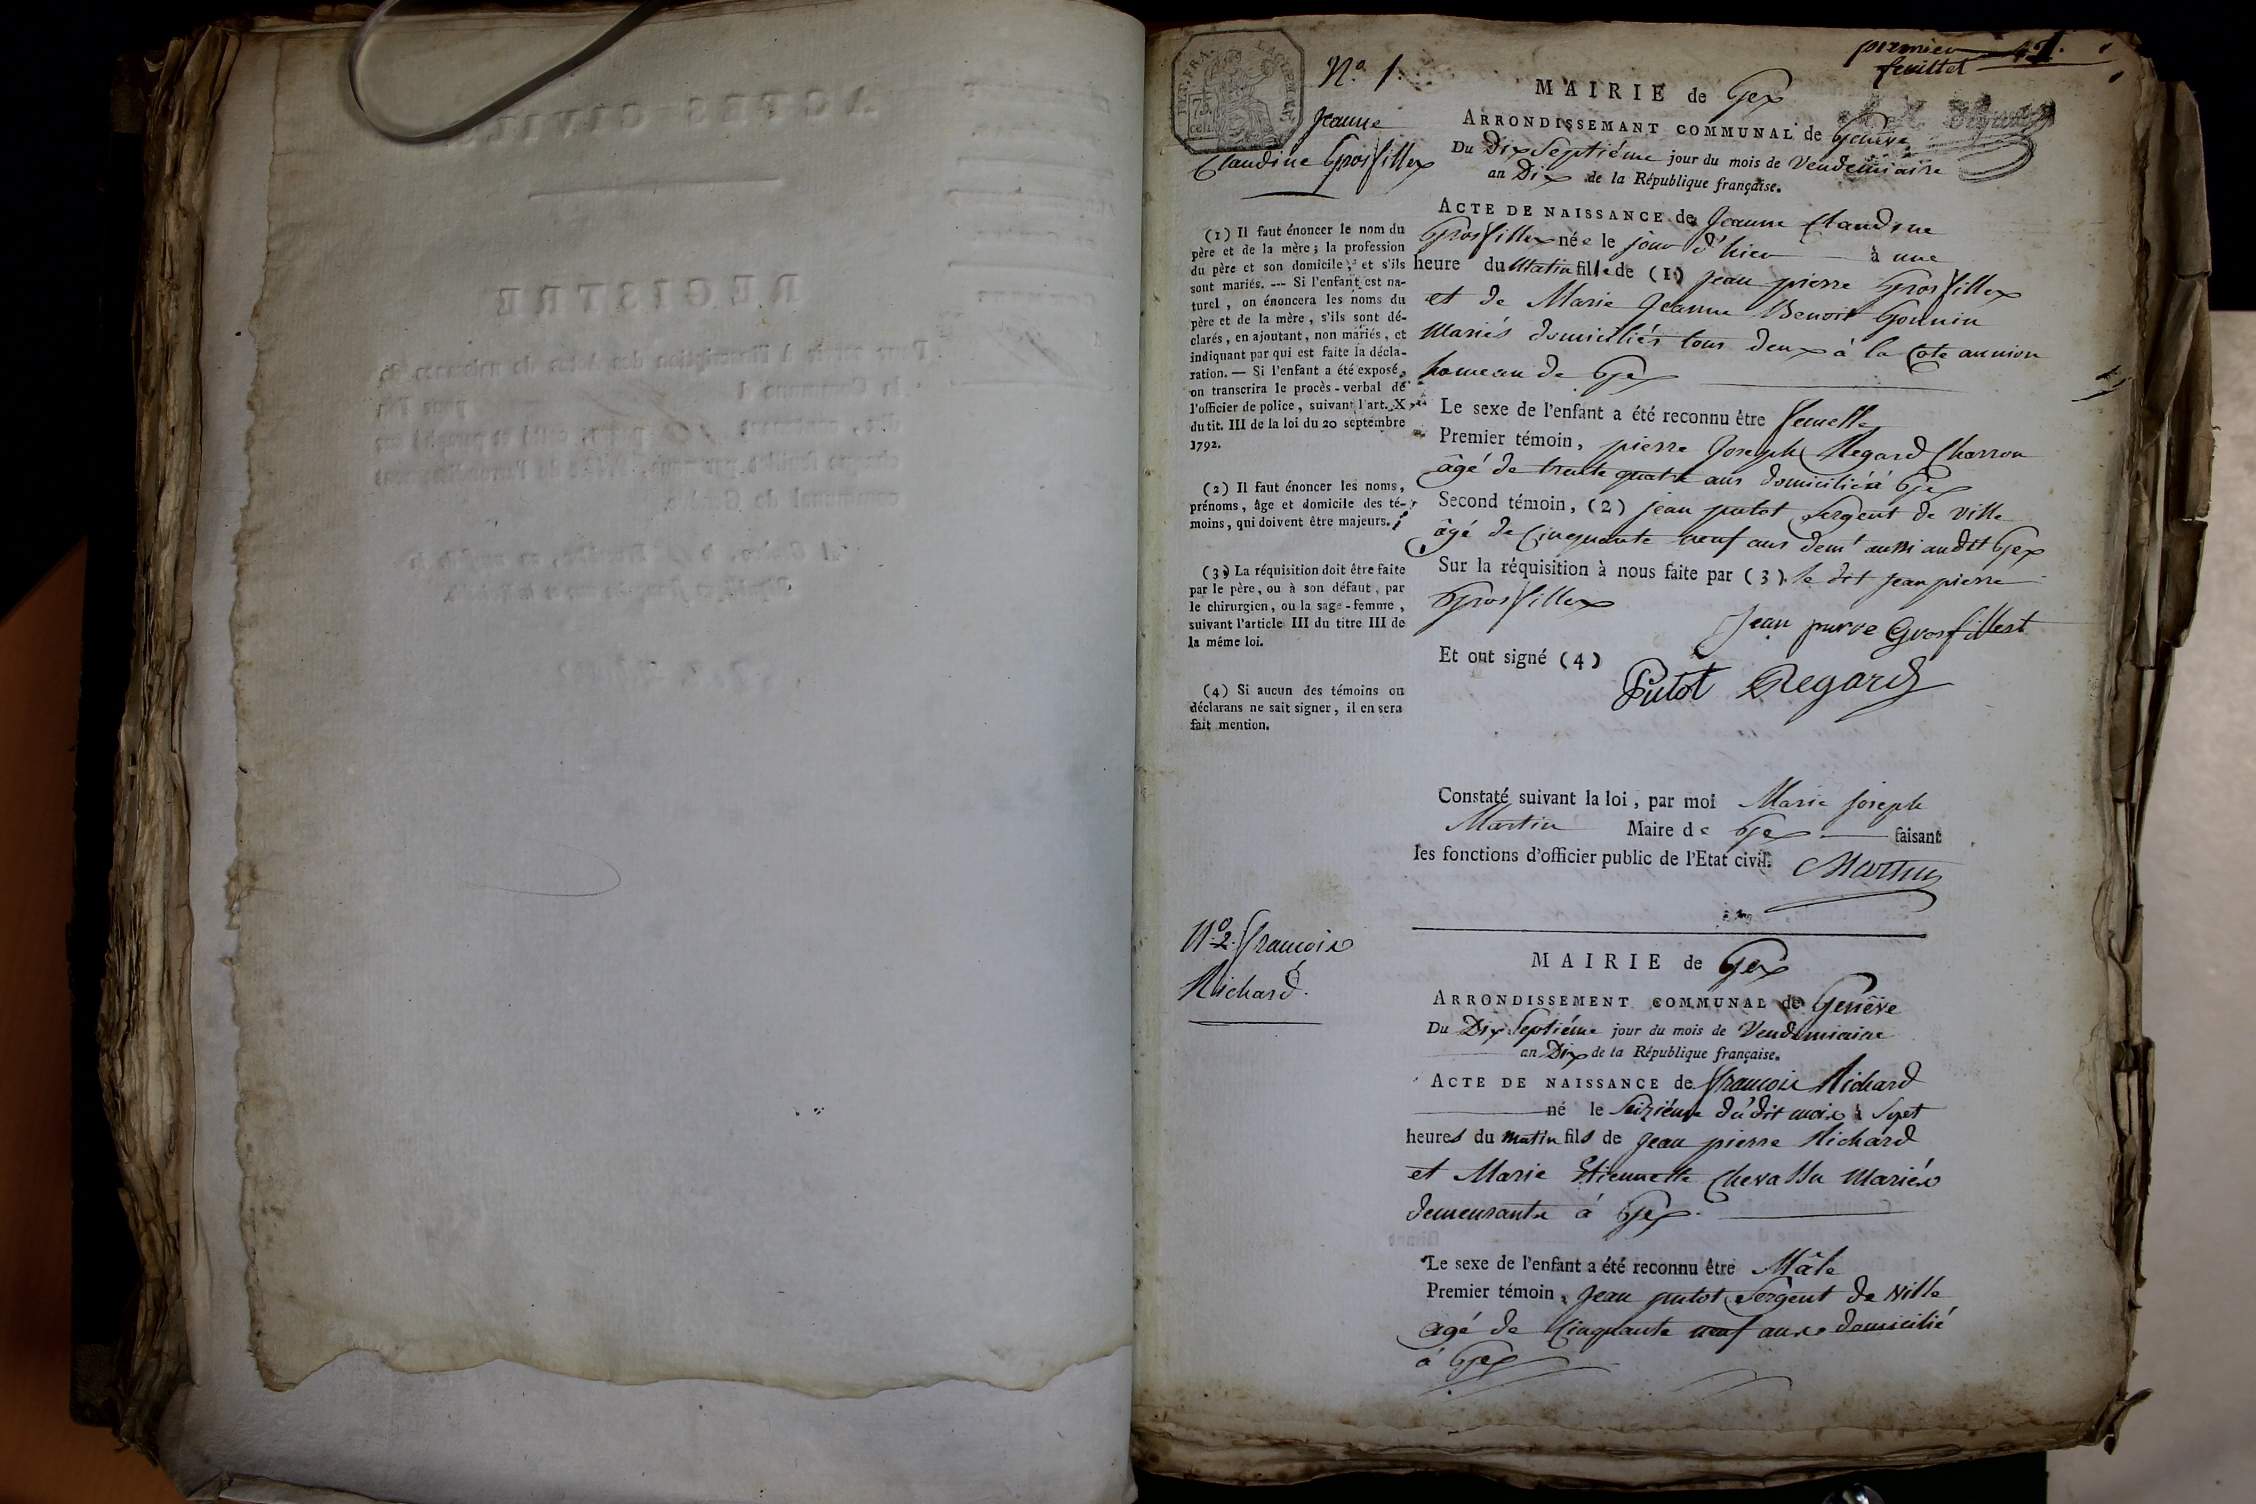 premier
feuillet
N.º 1.
Jeanne
Claudine Grosfillex
MAIRIE de Gex
ARRONDISSEMANT COMMUNAL de Genève
Du Dix Septiéme jour du mois de Vendemiaire
an Dix de la République française.
ACTE DE NAISSANCE de Jeanne Claudine
Grosfillex née le jour d'hier à une
heure du Matin fille de (1) jean pierre Grosfillex
et de Marie Jeanne Benoit Gounin
Mariés domiciliés tous deux à la Cote
hameau de Gex
Le sexe de l'enfant a été reconnu être femelle
Premier témoin, pierre Joseph Regard Charron
âgé de trente quatre ans domicilié à Gex
Second témoin, (2) jean putot Sergent de ville
âgé de Cinquante neuf ans dem.t aussi audit Gex
Sur la réquisition à nous faite par (3) le dit jean pierre
Grosfillex
Jean pierre Grosfillest
Et ont signé (4)
Putot Regard
Constaté suivant la loi, par moi Marie Joseph
Martin Maire de Gex faisant
les fonctions d'officier public de l'Etat civil.
Martin
(1) Il faut énoncer le nom du
père et de la mère ; la profession
du père et son domicile, et s'ils
sont mariés. --- Si l'enfant est na-
turel, on énoncera les noms du
père et de la mère, s'ils sont dé-
clarés, en ajoutant, non mariés, et
indiquant par qui est faite la décla-
ration. — Si l'enfant a été exposé,
on transcrira le procès-verbal de
l'officier de police, suivant l'art. X
du tit. III de la loi du 20 septembre
1792.
(2) Il faut énoncer les noms,
prénoms, âge et domicile des té-
moins, qui doivent être majeurs.
(3) La réquisition doit être faite
par le père, ou à son défaut, par
le chirurgien, ou la sage-femme,
suivant l'article III du titre III de
la même loi.
(4) Si aucun des témoins ou
déclarans ne sait signer, il en sera
fait mention.
N.º 2. françois
Richard.
MAIRIE de Gex
ARRONDISSEMENT COMMUNAL de Genêve
Du Dix Septiéme jour du mois de Vendemiaire
an Dix de la République française.
ACTE DE NAISSANCE de françois Richard
né le Seiziéme du dit mois à Sept
heures du Matin fils de Jean pierre Richard
et Marie Etiennette Chevassu Mariés
demeurants à Gex.
Le sexe de l'enfant a été reconnu être Mâle
Premier témoin, Jean putot Sergent de Ville
agé de Cinquante neuf ans domicilié
à Gex